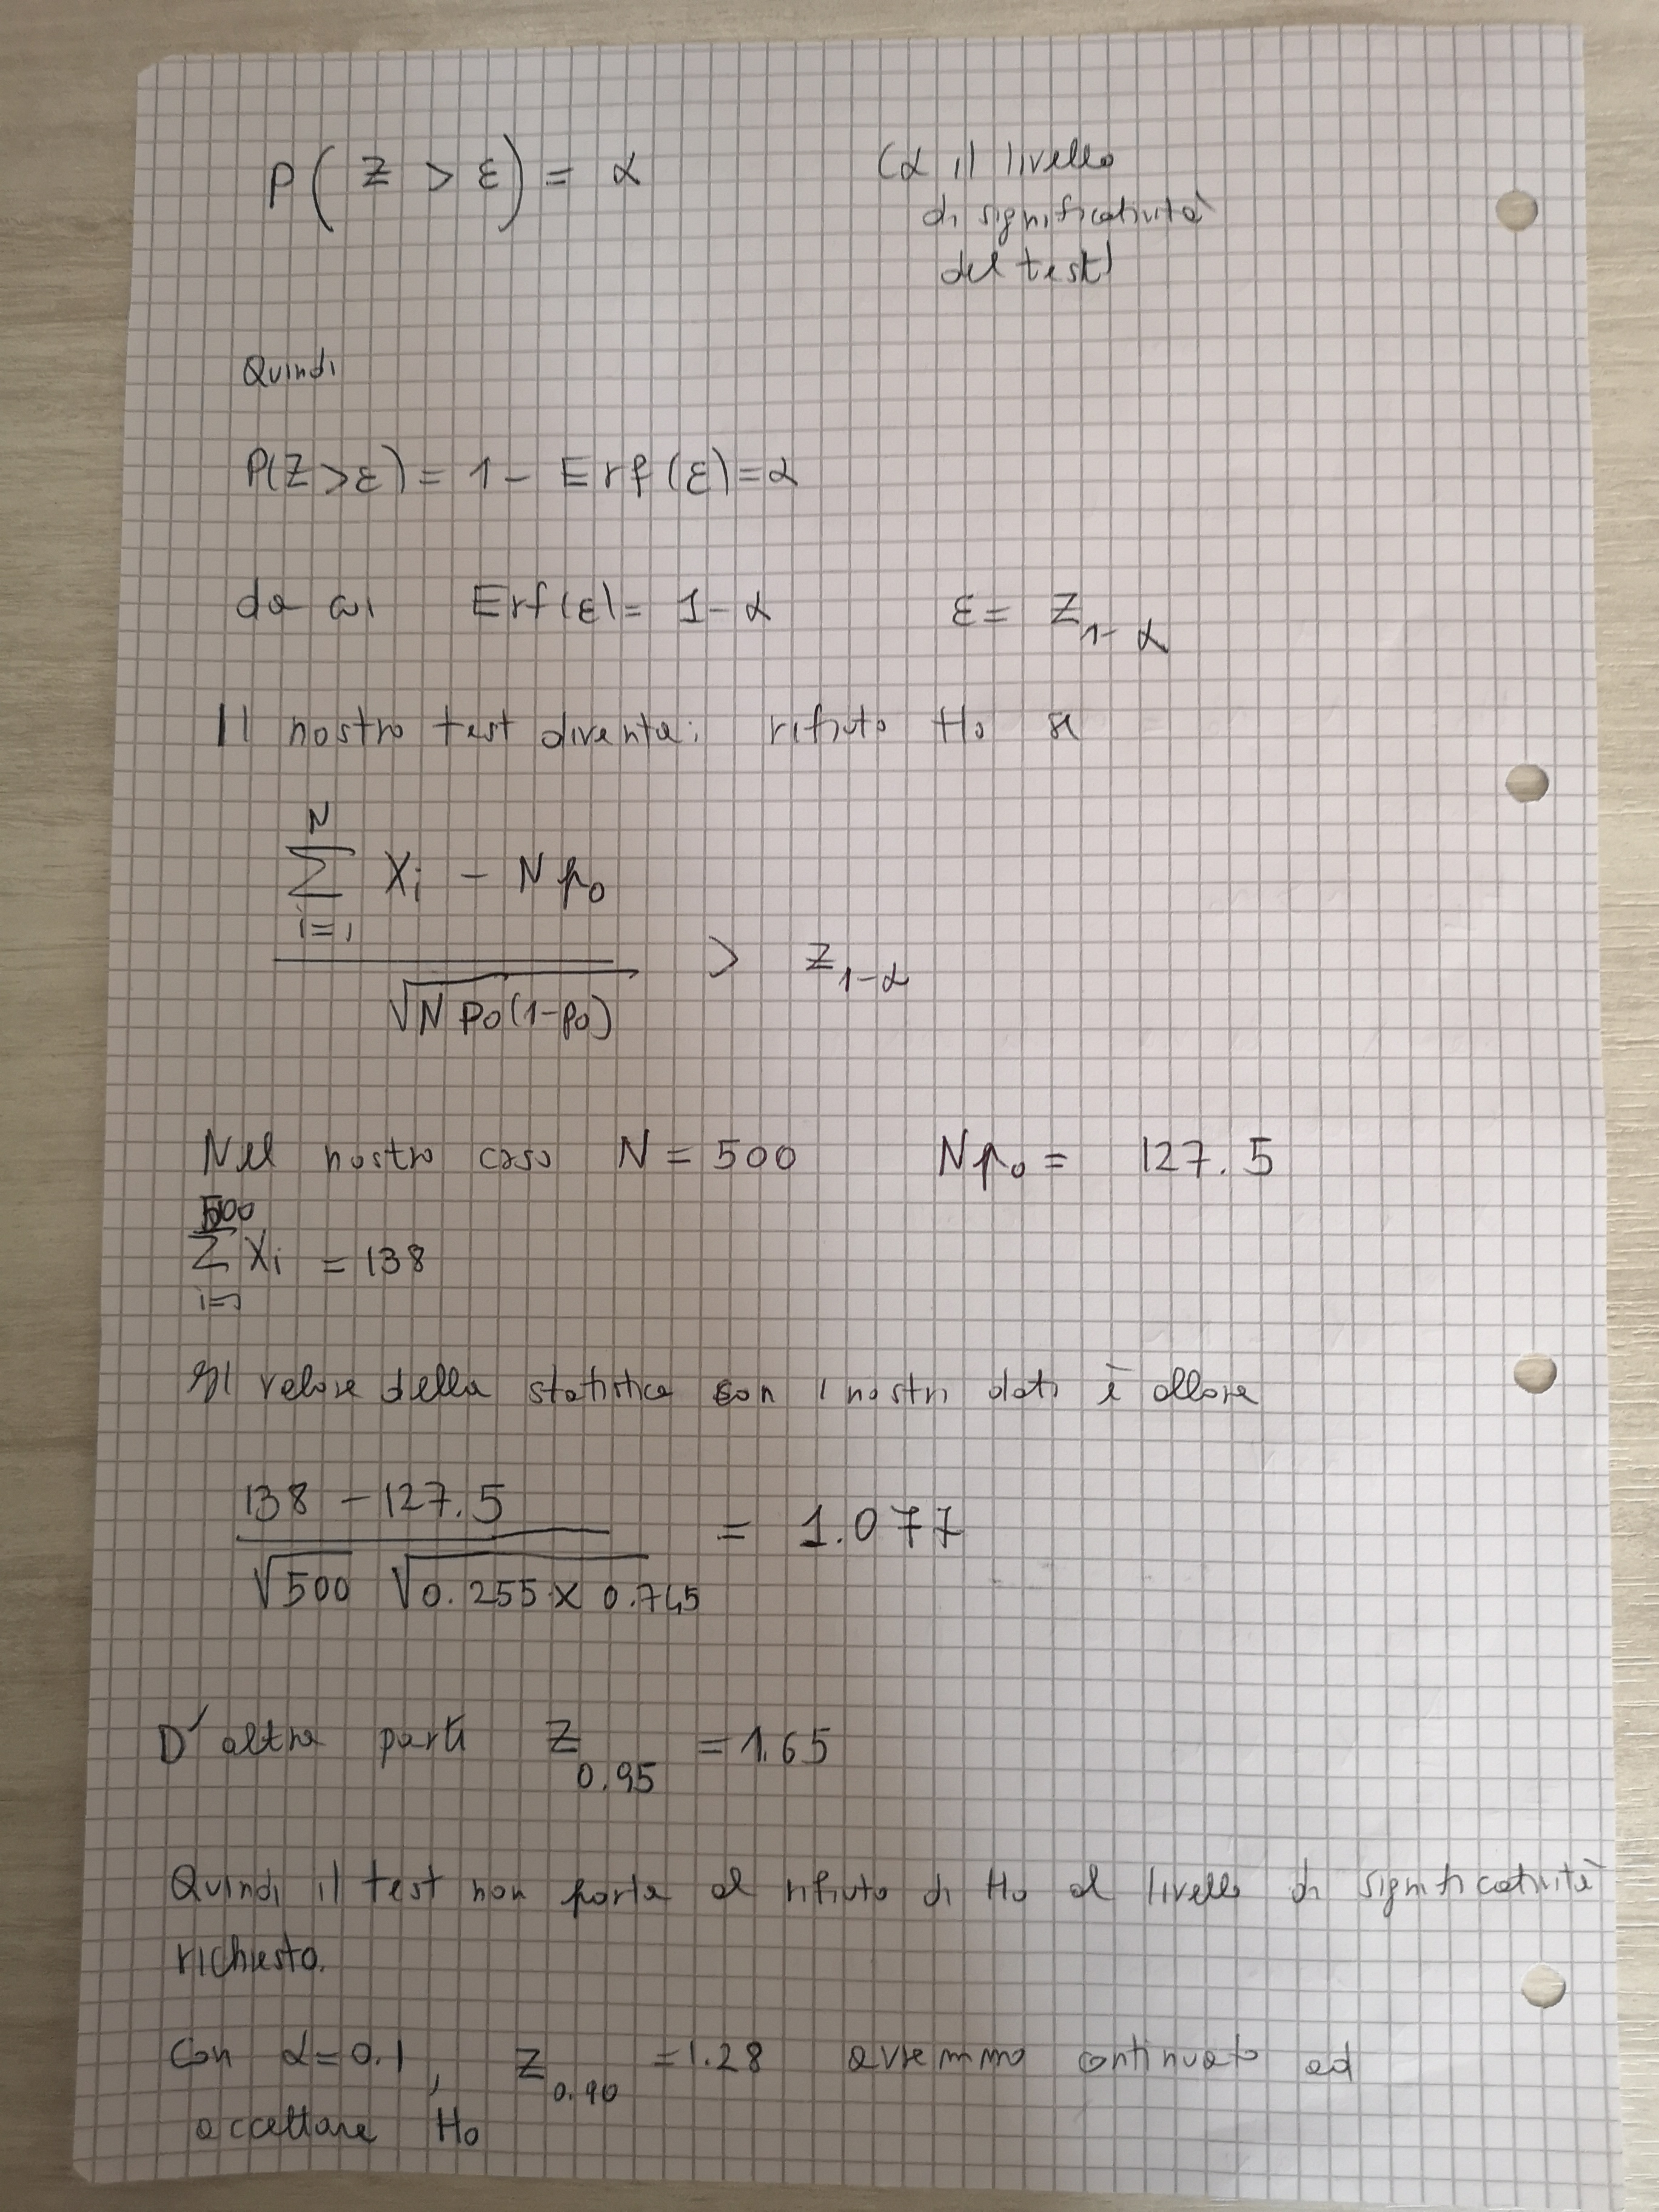 P( Z > ε) = α (α il livello
di significatività
del test)
Quindi
P(Z>ε) = 1 - Erf(ε)=α
da cui Erf(ε)= 1-α ε= Z_{1-α}
Il nostro test diventa: rifiuto H₀ se
\frac{\sum_{i=1}^{N} X_i - N p_0}{\sqrt{N p_0(1-p_0)}} > Z_{1-α}
Nel nostro caso N = 500 Np₀ = 127.5
\sum_{i=1}^{500} X_i = 138
Il valore della statistica con i nostri dati è allora
\frac{138 - 127.5}{\sqrt{500} \sqrt{0.255 × 0.745}} = 1.077
D'altra parte Z_{0.95} = 1.65
Quindi il test non porta al rifiuto di H₀ al livello di significatività
richiesto.
Con α=0.1, Z_{0.90} =1.28 avremmo continuato ad
accettare H₀